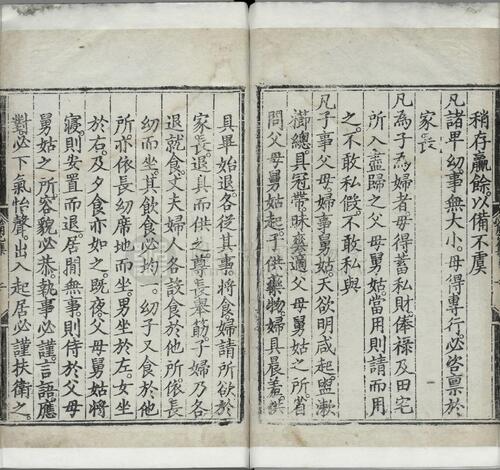 稍存贏餘以備不虞
凡諸卑幼事無大小毋得專行必咨禀於
家長
凡為子為婦者毋得蓄私財俸祿及田宅
所入盡歸之父母舅姑當用則請而用
之不敢私假不敢私與
凡子事父母婦事舅姑天欲明咸起盥漱
櫛總具冠帶昧爽適父母舅姑之所省
問父母舅姑起子供藥物婦具晨羞供
具畢始退各從其事將食婦請所欲於
家長退具而供之尊長舉筯子婦乃各
退就食丈夫婦人各設食於他所依長
幼而坐其飲食必均一幼子又食於他
所亦依長幼席地而坐男坐於左女坐
於右及夕食亦如之既夜父母舅姑將
寢則安置而退居閒無事則侍於父母
舅姑之所容貌必恭執事必謹言語應
對必下氣怡聲出入起居必謹扶衛之